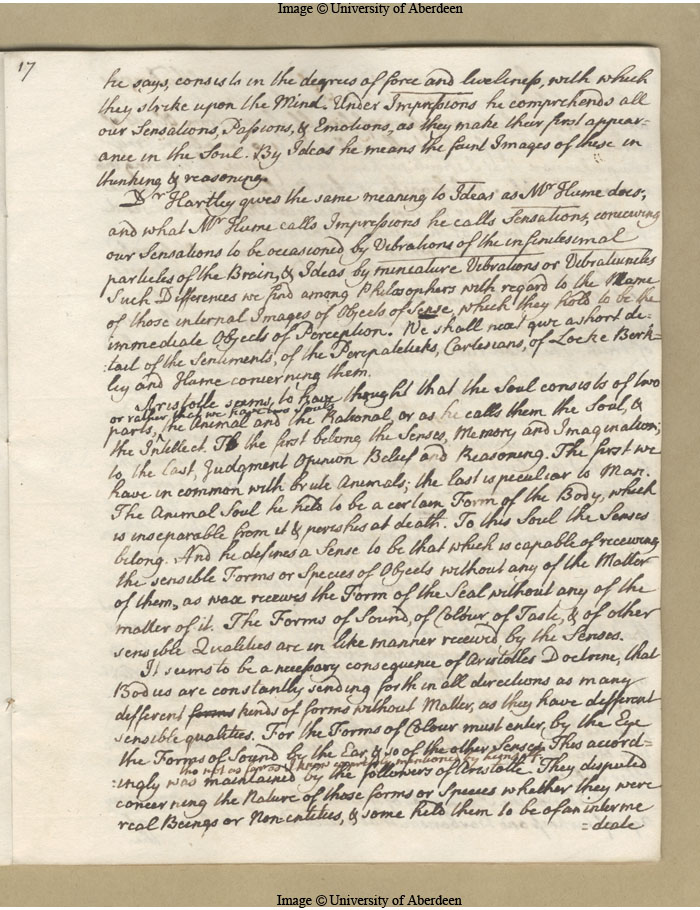 Image © University of Aberdeen
17
he says, consists in the degrees of force and liveliness, with which
they strike upon the Mind. Under Impressions he comprehends all
our Sensations, Passions, & Emotions, as they make their first appear=
ance in the Soul. By Ideas he means the faint Images of these in
thinking & reasoning.
Dr Hartley gives the same meaning to Ideas as Mr Hume does,
and what Mr Hume calls Impressions he calls Sensations, conceiving
our Sensations to be occasioned by Vibrations of the infinitesimal
particles of the Brain, & Ideas by miniature Vibrations or Vibratiuncles
Such Differences we find among Philosophers with regard to the Name
of those internal Images of Objects of Sense, which they hold to be the
immediate Objects of Perception. We shall next give a short de=
tail of the Sentiments, of the Peripateticks, Cartesians, of Locke Berk=
ley and Hume concerning them.
Aristotle seems, to have thought that the Soul consists of two
or rather that we have two Souls
parts, the Animal and the Rational, or as he calls them the Soul, &
the Intellect. To the first belong the Senses, Memory and Imagination;
to the last, Judgment Opinion Belief and Reasoning. The first we
have in common with brute Animals; the last is peculiar to Man.
The Animal Soul he held to be a certain Form of the Body, which
is inseparable from it & perishes at death. To this Soul the Senses
belong. And he defines a Sense to be that which is capable of receiving
the sensible Forms or Species of Objects without any of the Matter
of them, as wax receives the Form of the Seal without any of the
matter of it. The Forms of Sound, of Colour of Taste, & of other
sensible Qualities are in like manner received by the Senses.
It seems to be a necessary consequence of Aristotles Doctrine, that
Bodies are constantly sending forth in all directions as many
different forms kinds of forms without Matter, as they have different
sensible qualities. For the Forms of Colour must enter, by the Eye
the Forms of Sound by the Ear, & so of the other Senses. This accord=
tho not as far as I know expressly mentioned by
=ingly was maintained by the followers of Aristotle. They disputed
concerning the Nature of those forms or Species whether they were
real Beings or Nonentities, & some held them to be of an interme
=diate
Image © University of Aberdeen